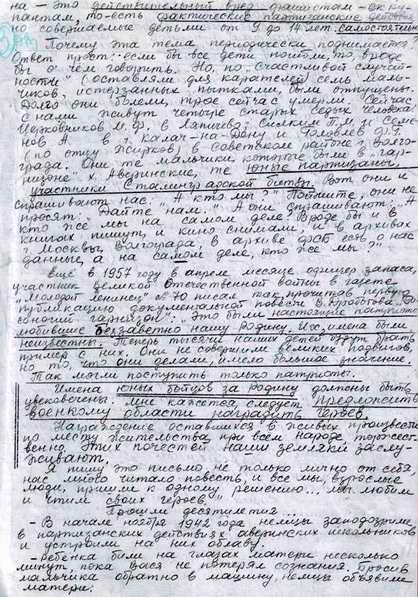 на - это действительный вред фашистам - окку-
пантам, то-есть фактические партизанские действия
но совершаемые детьми от 9 до 14 лет самостоятельно
Почему эта тема периодически поднимается
Ответ прост: если бы все дети погибли, то, вроде
бы и чем говорить. Но, по "счастливой случай-
ности" (оставляли для карателей) семь маль-
чиков, истерзанных пытками, были отпущены.
Долго они болели, трое сейчас умерли. Сейчас
с нами живут четыре старых седых человека
Церковников М.Ф. в Ляпичево, Синькин П.М. и Семе-
нов А. в г. Калач-на-Дону и Головлев Ф.Г.
(по отцу Жирков) в Советском районе г. Волго-
града. Они те мальчики, которые были в "гар-
низоне" х. Аверинские, те юные партизаны,
участники Сталинградской битвы. Вот они и
спрашивают нас: "А кто мы?" Поймите, они не
просят: "Дайте нам." А они спрашивают: "А
кто же мы на самом деле? Вроде бы и в
книгах пишут, и кино снимают, и в архивах
г. Москвы, Волгограда, в архиве ФСБ есть о нас
данные, а на самом деле, кто же мы?"
Ещё в 1957 году в апреле месяце офицер запаса,
участник Великой Отечественной войны в газете
"Молодой ленинец" № 70 писал так, прочитав первую
публикацию документальной повести В. Дроботова "Б
соногий гарнизон": "Это были настоящие патриоты
любившие беззаветно нашу Родину. Их имена были
неизвестны. Теперь тысячи наших детей будут брать
пример с них. Они не совершили великих подвигов,
но то, что они делали, имело большое значение.
Так могли поступить только патриоты.
Имена юных бойцов за Родину должны быть
увековечены. Мне кажется, следует предложить
военкому области наградить героев.
Награждение оставшихся в живых произвести
по месту жительства, при всём народе, торжест-
венно. Этих почестей наши земляки заслу-
живают.
Я пишу это письмо не только лично от себя,
нас много читало повесть, и все мы, взрослые
люди, пришли к одному решению... мы любим
и чтим своих героев."
Прошли десятилетия
- В начале ноября 1942 года немцы заподозрили
в партизанских действиях аверинских школьников
и устроили на них облаву.
- ребёнка били на глазах матери несколько
минут, пока Вася не потерял сознания. Бросив
мальчика обратно в машину, немцы объявили
матери: